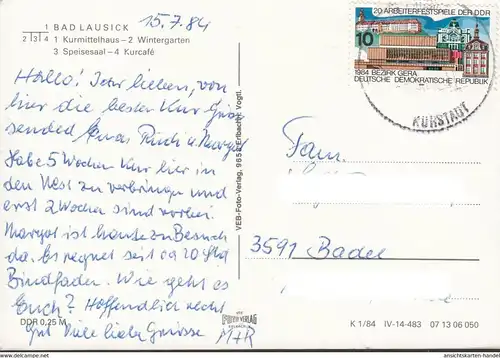 15.7.84
BAD LAUSICK
1 Kurmittelhaus – 2 Wintergarten
3 Speisesaal – 4 Kurcafé
1
2 3 4
Hallo! Ihr lieben, von
hier die besten Kur Grüße
sendet Euch Rudi u. Margot
Habe 5 Wochen Kur hier in
den Nest zu verbringen und
erst 2 Wochen sind vorbei.
Margot ist heute zu Besuch
da. Es regnet seit ca 20 Std
Bindfäden. Wie geht es
Euch? Hoffendlich recht
gut Viele liebe Grüsse
M+R
DDR 0,25 M
VEB-Foto-Verlag, 9654 Erlbach i. Vogtl.
VEB
FOTO VERLAG
ERLBACH
20. ARBEITERFESTSPIELE DER DDR
10
1984 BEZIRK GERA
DEUTSCHE DEMOKRATISCHE REPUBLIK
KURSTADT
Fam.
3591 Badel
K 1/84 IV-14-483 07 13 06 050
© www.ansichtskarten-handel.com